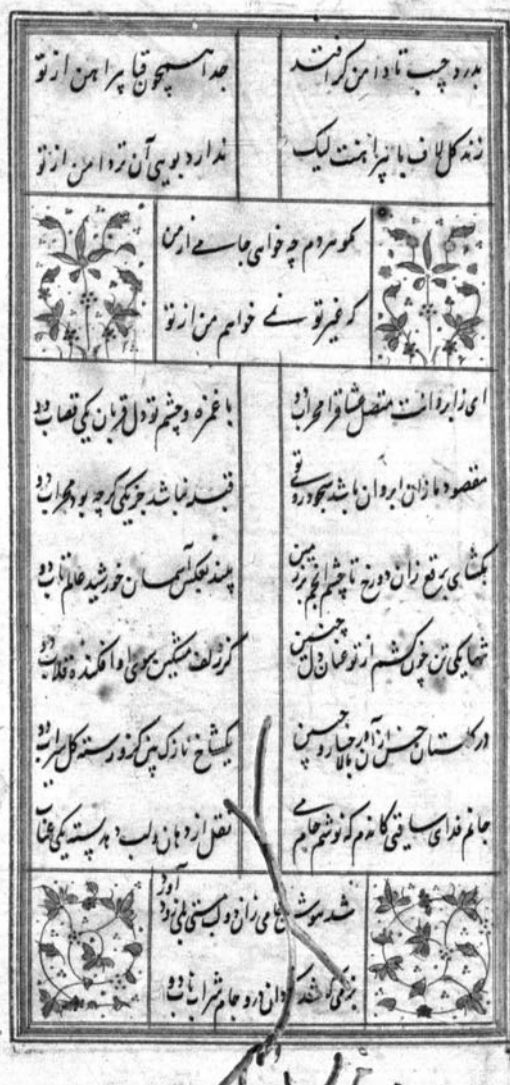 بدرد چیب تا دامن گر افتد
جدا همچون قبا پیراهن از تو
زند گل لاف با پیراهنت لیک
ندارد بویی آن تردامن از تو
مگو هر دم چه خواهی جامی از من
که غیر تو نے خواهم من از تو
ای ز ابروانت متصل عشاق را محراب دو
با غمزه و چشم تو دل قربان یکی قصاب دو
مقصود ما زان ابروان باشد سجود روی تو
قبله نباشد جز یکی گرچه بود محراب دو
بگشای برقع زان دو رخ تا چشم انجم بر زمین
بیند بعکس آسمان خورشید عالم تاب دو
تنها یکی تن چون کشم از تو عنان دل چنین
کز زلف مشکین سوی او افکنده قلاب دو
در گلستان حسن از آن بالا و رخسار چنین
یکشاخ نازک بین کزو رسته گل سیراب دو
جانم فدای ساقیی کاندم که نوشم جام می
نقل از دهان و لب دهد پسته یکی عناب
شد هوش جامی زان دو لب مستی
بزمی در و جام شراب ناب دو